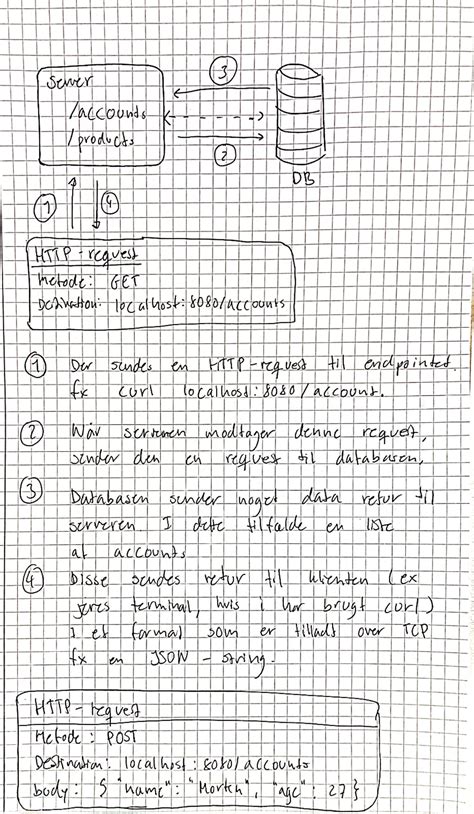 Server
/accounts
/products
3
2
DB
1
4
HTTP-request
Metode: GET
Destination: localhost:8080/accounts
1 Der sendes en HTTP-request til endpointet.
fx curl localhost:8080/account.
2 Når serveren modtager denne request,
sender den en request til databasen.
3 Databasen sender noget data retur til
serveren. I dette tilfælde en liste
af accounts
4 Disse sendes retur til klienten (ex
jeres terminal, hvis i har brugt curl)
i et format som er tilladt over TCP
fx en JSON-string.
HTTP-request
Metode: POST
Destination: localhost:8080/accounts
body: { "name": "Morten", "age": 27 }